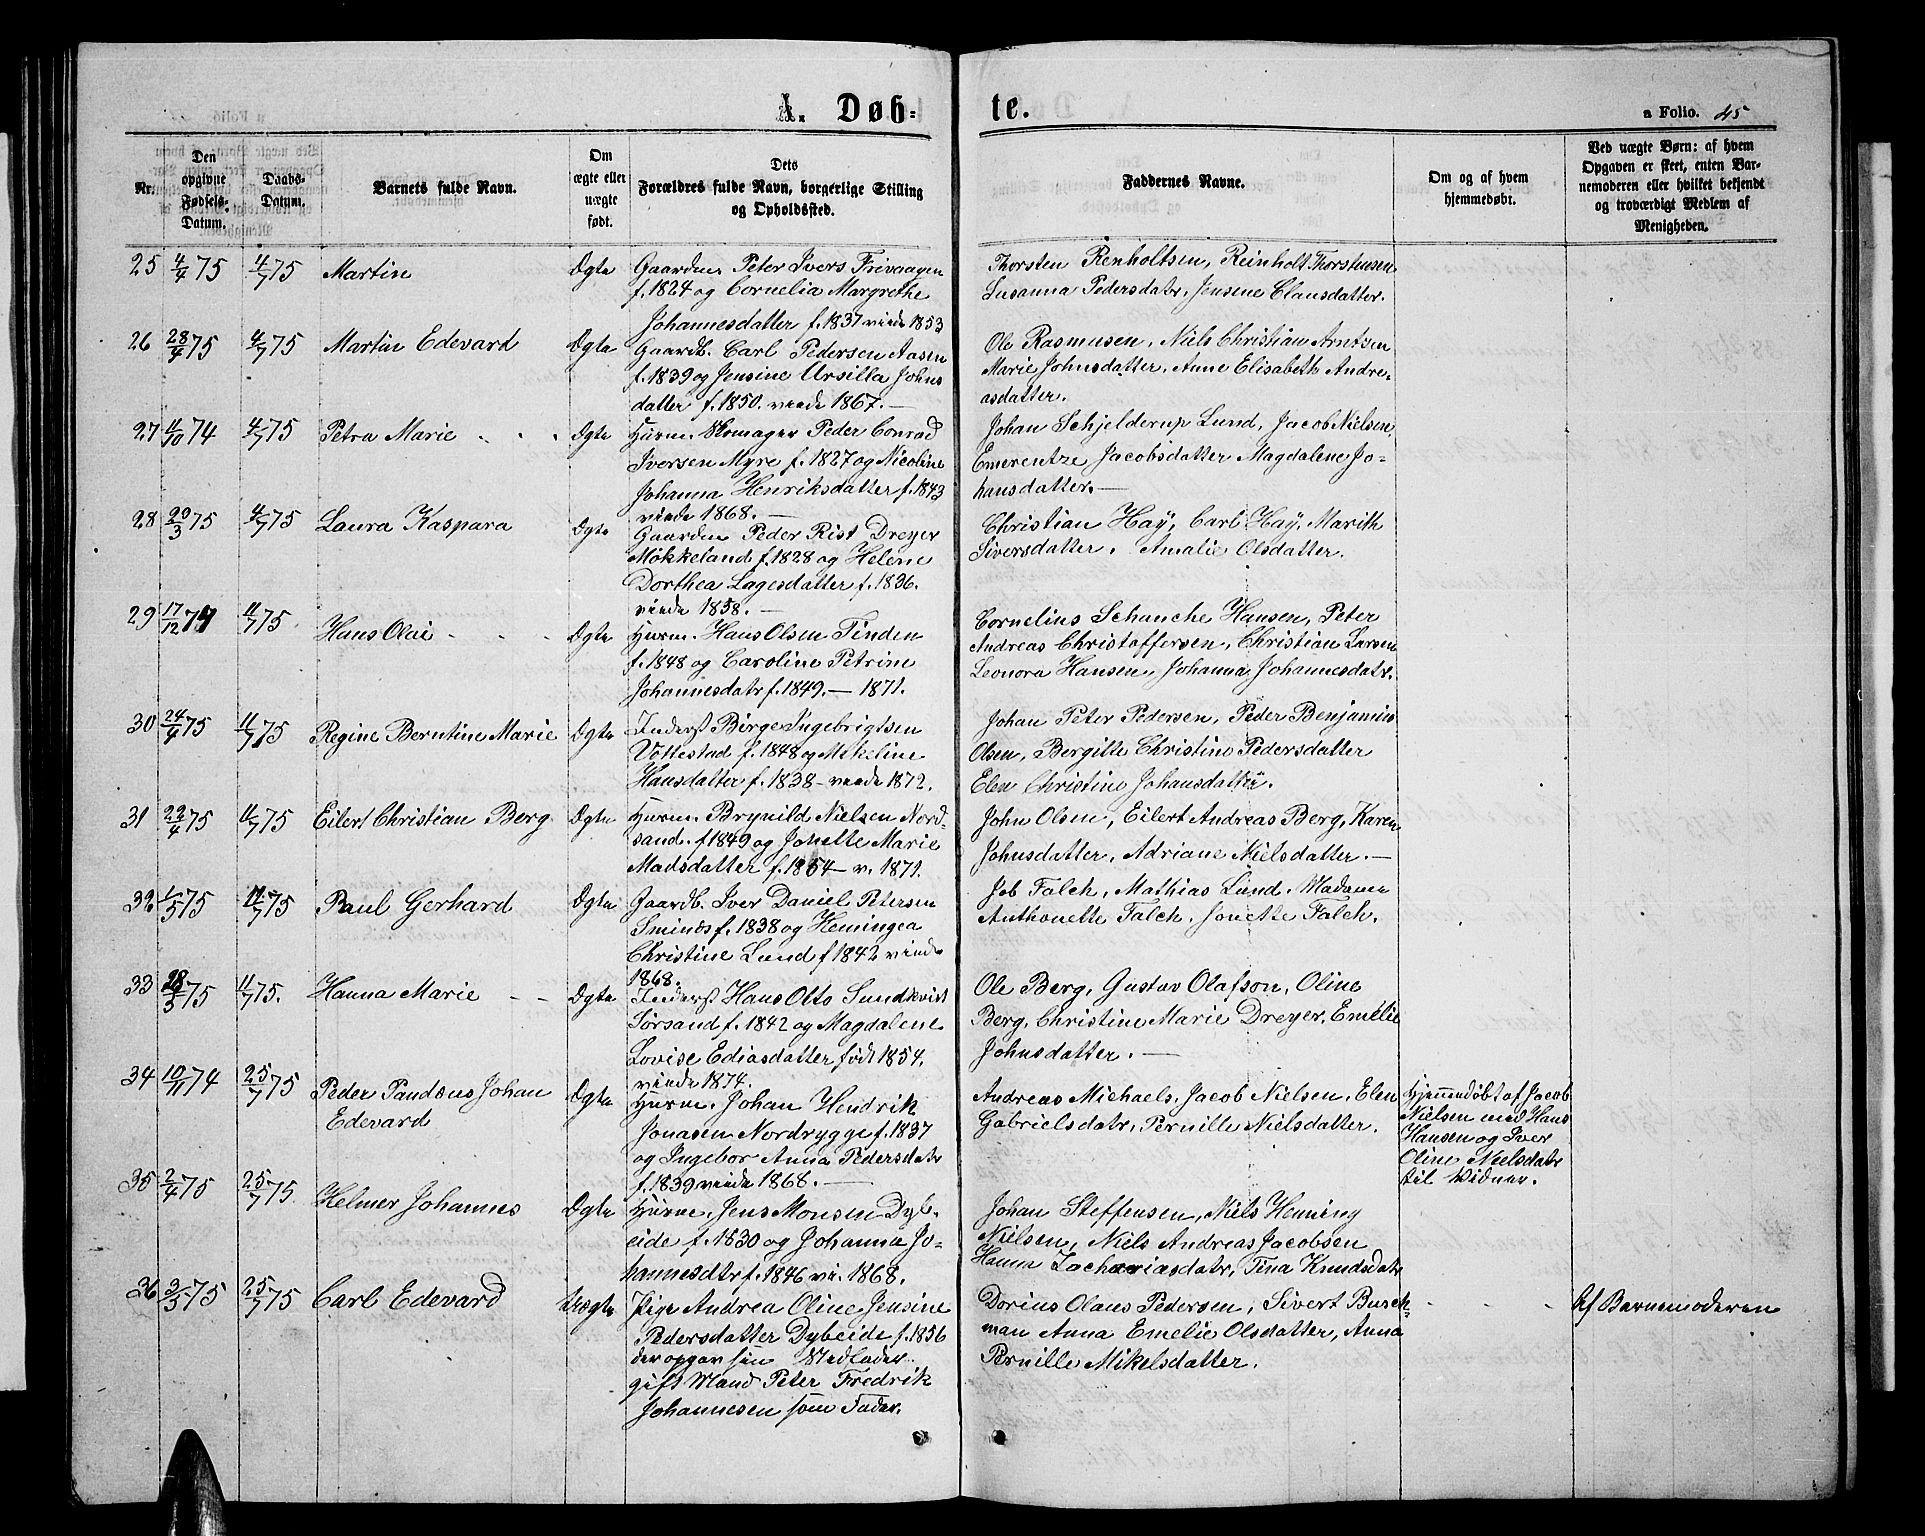 A. Døb-
te.
a Folio. 45
Nr.
Den opgivne Fødsels-Datum.
Daabs-Datum.
Barnets fulde Navn.
Om ægte eller uægte født.
Dets Forældres fulde Navn, borgerlige Stilling og Opholdssted.
Faddernes Navne.
Om og af hvem hjemmedøbt.
Ved uægte Børn: af hvem Opgaven er skeet, enten Barnemoderen eller hvilket bekjendt og troværdigt Medlem af Menigheden.
25 4/4 75 4/7 75 Martin Ægte
Gaardm. Peter Ivers Trivaagen
f. 1824 og Cornelia Margrethe
Johannesdatter f. 1837 viede 1853
Thorsten Renholtsen, Reinholt Thorstensen
Susanna Pedersdatr, Jensine Clausdatter.
26 28/4 75 4/7 75 Martin Edevard Ægte
Gaardb. Carl Pedersen Aasen
f. 1839 og Jensine Ursilla Johns
datter f. 1850. viede 1867. —
Ole Rasmusen, Niels Christian Arntsen
Marie Johnsdatter, Anne Elisabeth Andre-
asdatter.
27 11/10 74 4/7 75 Petra Marie Ægte
Huusm. Skomager Peder Conrad
Iversen Myre f. 1827 og Nicoline
Johanna Henriksdatter f. 1843
viede 1868. —
Johan Schjelderup Lund, Jacob Nielsen,
Emerentze Jacobsdatter Magdalene Jo-
hansdatter. —
28 20/3 75 4/7 75 Laura Kaspara Ægte
Gaardm Peder Rist Dreyer
Mökkeland f. 1828 og Helene
Dorthea Lagesdatter f. 1836.
viede 1858. —
Christian Haÿ, Carl Haÿ, Marith
Siversdatter. Amalie Olsdatter.
29 17/12 74 11/7 75 Hans Olai Ægte
Huusm. Hans Olsen Tinden
f. 1848 og Caroline Petrine
Johannesdatr f. 1849. — 1871.
Cornelius Schanche Hansen, Peter
Andreas Christoffersen, Christian Larsen
Leonora Hansen, Johanna Johannesdatr.
30 24/4 75 11/7 75 Regine Berntine Marie Ægte
Inderst Birge Ingebrigtsen
Vottestad f. 1848 og Mikeline
Hansdatter f. 1838 - viede 1872.
Johan Peter Pedersen, Peder Benjamin
Olsen, Bergitte Christine Pedersdatter
Elen Christine Johansdatter.
31 22/4 75 11/7 75 Eilert Christian Berg Ægte
Huusm. Brynild Nielsen Nord-
sand. f. 1849 og Jonette Marie
Madsdatter f. 1854 — v. 1871.
John Olsen, Eilert Andreas Berg, Karen
Johnsdatter, Adriane Nielsdatter. —
32 1/5 75 11/7 75 Paul Gerhard Ægte
Gaardb. Iver Daniel Petersen
Sminæs f. 1838 og Hemingea
Christine Lund f 1842 viede
1868.
Job Falch, Mathias Lund. Madame
Anthonette Falch, Jonette Falch.
33 28/5 75 11/7 75. Hanna Marie Ægte
Inderst Hans Otto Sundkvist
Sørsand f. 1842 og Magdalene
Lovise Ediasdatter født 1854.
viede 1874.
Ole Berg, Gustav Olafson, Oline
Berg, Christine Marie Dreyer, Emelie
Johnsdatter. —
34 10/11 74 25/7 75 Peder Pandæus Johan
Edevard Ægte
Huusm. Johan Hendrik
Jonasen Nordrygge f. 1837
og Ingebor Anna Pedersdatr
f. 1839 viede 1868. —
Andreas Michaels, Jacob Nielsen, Elen
Gabrielsdatr, Pernille Nielsdatter.
Hjemmedøbt af Jacob
Nielsen med Hans
Hansen og Iver
Oline Nielsdatr
til Vidner.
35 2/4 75 25/7 75. Helmer Johannes Ægte
Huusm. Jens Monsen Dyb-
eide f. 1830 og Johanna Jo-
hannesdtr f. 1846 vi. 1868.
Johan Steffensen, Niels Heming
Nielsen, Niels Andreas Jacobsen
Hanna Zachariasdatr, Tina Knudsdatr
36 3/5 75 25/7 75 Carl Edevard Uægte
Pige Andrea Oline Jensine
Pedersdatter Dybeide f. 1856
der opgav sin Stedfader
gift Mand Peter Fredrik
Johannesen som Fader.
Dorius Olaus Pedersen, Sivert Busch-
man Anna Emelie Olsdatter, Anna
Pernille Mikelsdatter.
Af Barnemoderen